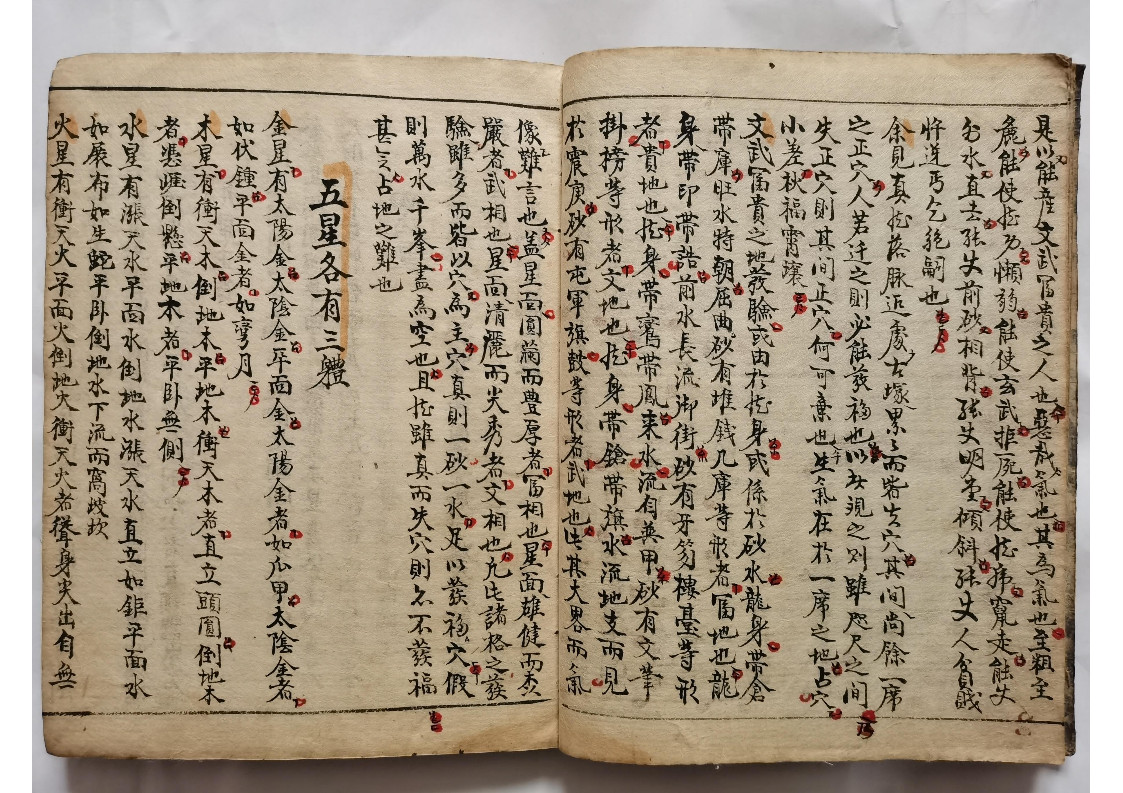 是以能産文武富貴之人也惡哉氣也其為氣也至粗主
危能使龍為懶弱能使玄武拒死能使龍虎竄走能丈
句水直去能丈前砂相背能丈明堂傾斜能丈人貧賤
忤逆丐乞絶嗣也
余見真龍落脉近處古塚累之而皆失穴其間尚餘一席
之正穴人若迁之則必能發福也以此現之則雖咫尺之間
失正穴則其間正穴何可棄也生氣在於一席之地占穴
小差秋福霄壤
文武富貴之地發驗或由於龍身或係於砂水龍身帶倉
帶庫旺水特朝屈曲砂有堆錢几庫等形者富地也龍
身帶印帶誥前水長流御街砂有牙笏樓臺等形
者貴地也龍身帶鸞帶鳳来水流自巽甲砂有文筆
掛榜等形者文地也龍身帶鎗帶旗水流地支而見
於震庚砂有屯軍旗鼓等形者武地也此其大畧而氣
像難言也盖星面圓崗而豊厚者富相也星面雄健而
嚴者武相也星面清麗而尖秀者文相也凡此諸格之發
驗雖多而皆以穴為主穴真則一砂一水足以發福穴假
則萬水千峯盡為空也且龍雖真而失穴則亦不發福
甚之占地之難也
五星各有三軆
金星有太陽金太陰金平面金太陽金者如瓜甲太陰金者
如伏鍾平面金者如彎月
木星有衝天木倒地木平地木衝天木者直立頭圓倒地木
者憑崖倒懸平地木者平卧無側
水星有漲天水平面水倒地水漲天水直立如鉅平面水
如展布如生蛇平卧倒地水下流而窩歧坎
火星有衝天火平面火倒地火衝天火者聳身尖出自無